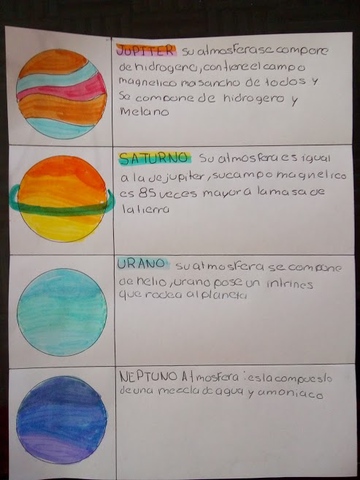 JUPITER su atmosfera se compone
de hidrogeno, contiene el campo
magnetico mas ancho de todos y
se compone de hidrogero y
Metano
SATURNO Su atmosfera es igual
a la de jupiter, su campo magnetico
es 85 veces mayor a la masa de
la tierra
URANO su atmosfera se compone
de helio, urano pose un intrines
que rodea al planeta
NEPTUNO Atmosfera: esta compuesto
de una mezcla de agua y amoniaco